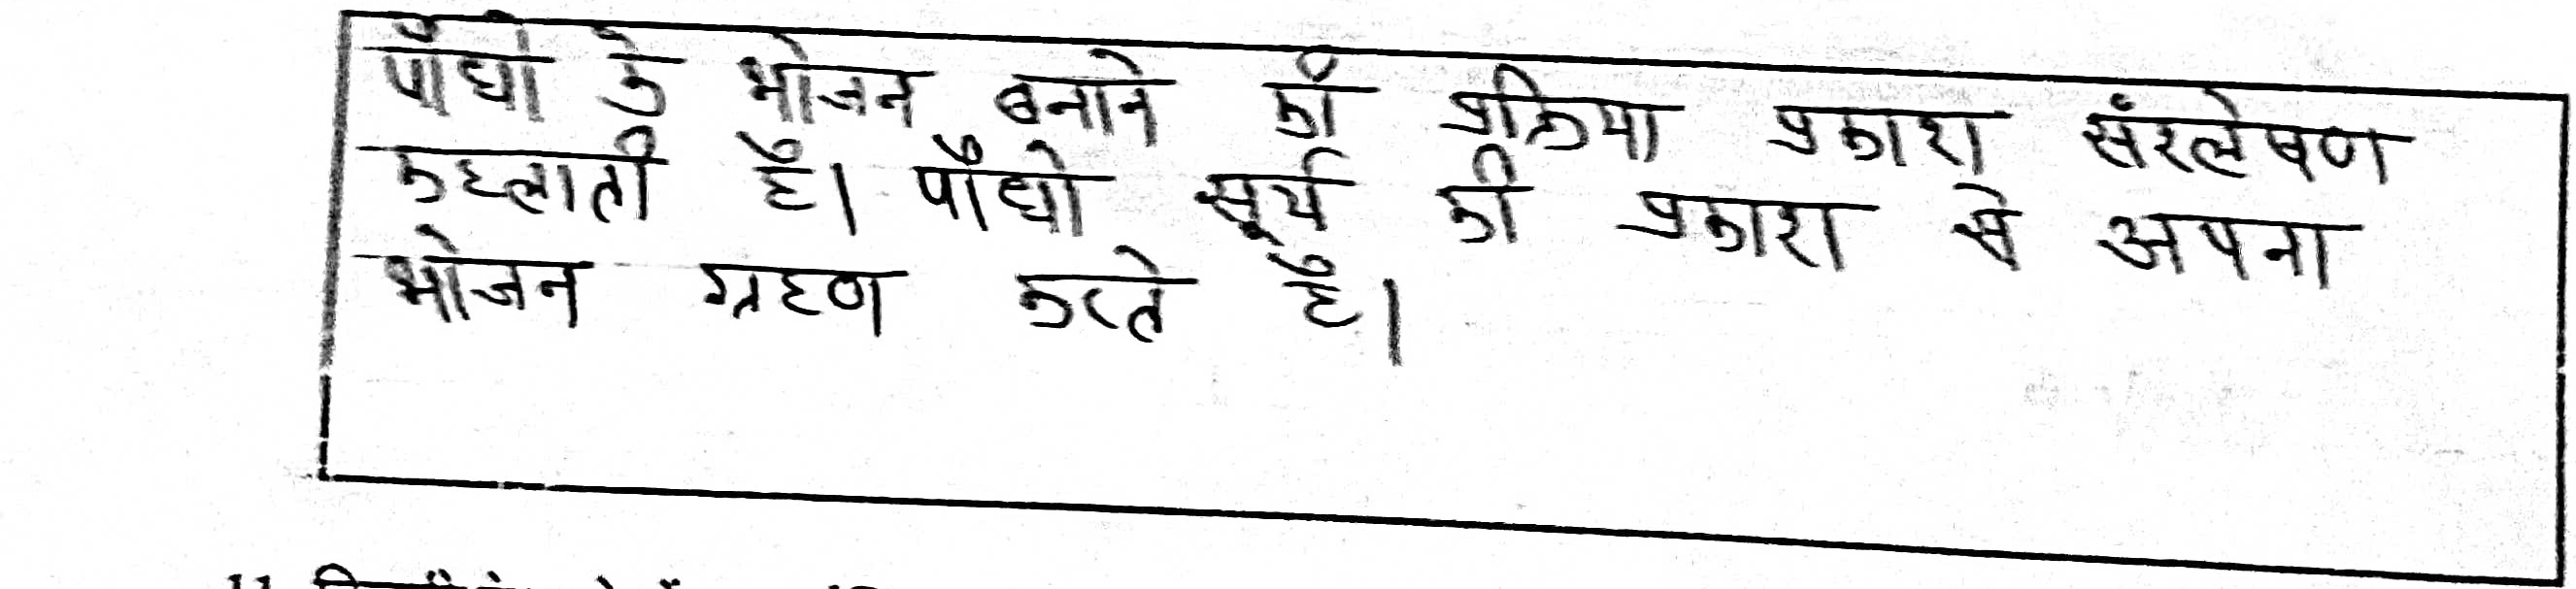 पौधों के भोजन बनाने की प्रक्रिया प्रकाश संश्लेषण
कहलाती है। पौधो सूर्य की प्रकाश से अपना
भोजन ग्रहण करते है।